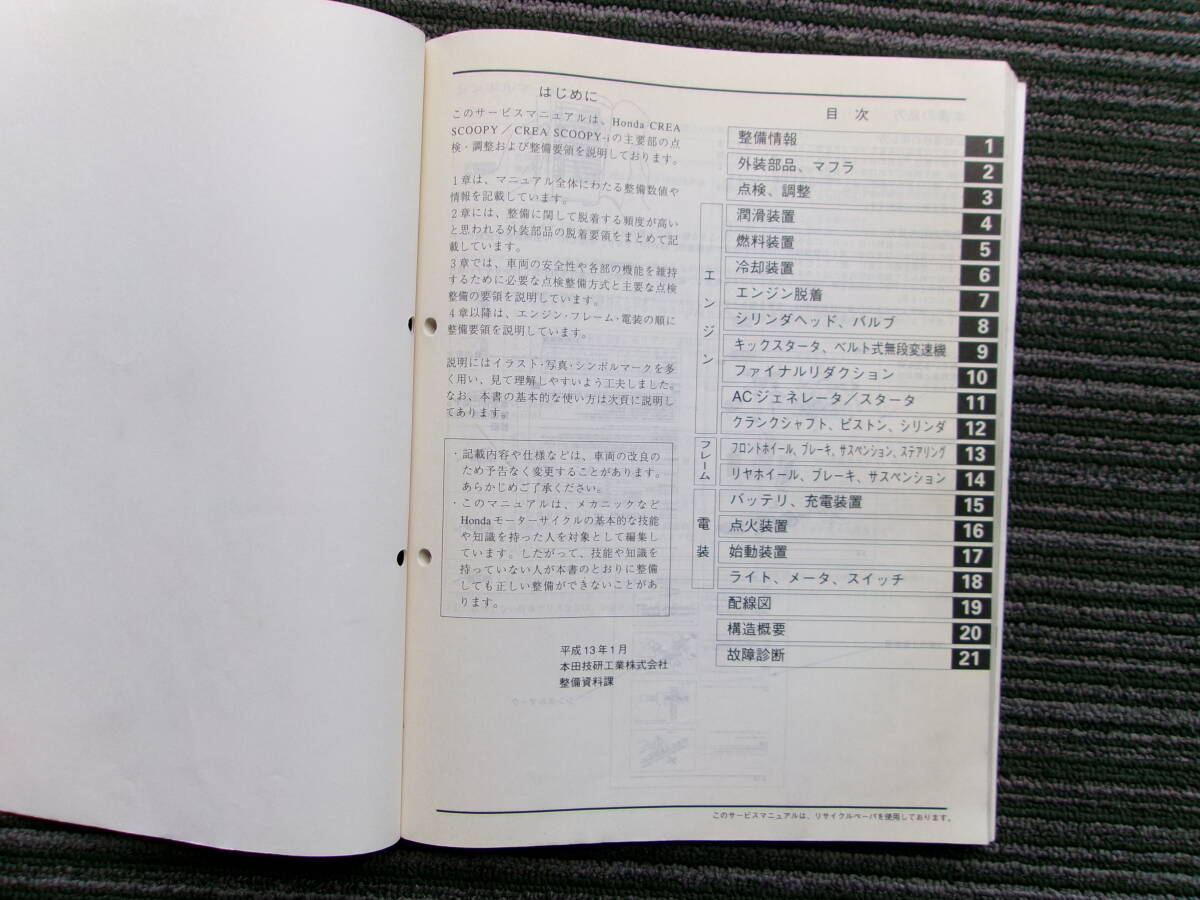 はじめに
このサービスマニュアルは、Honda CREA
SCOOPY／CREA SCOOPY-iの主要部の点
検・調整および整備要領を説明しております。
1章は、マニュアル全体にわたる整備数値や
情報を記載しています。
2章には、整備に関して脱着する頻度が高い
と思われる外装部品の脱着要領をまとめて記
載しています。
3章では、車両の安全性や各部の機能を維持
するために必要な点検整備方式と主要な点検
整備の要領を説明しています。
4章以降は、エンジン・フレーム・電装の順に
整備要領を説明しています。
説明にはイラスト・写真・シンボルマークを多
く用い、見て理解しやすいよう工夫しました。
なお、本書の基本的な使い方は次頁に説明し
てあります。
・記載内容や仕様などは、車両の改良の
ため予告なく変更することがあります。
あらかじめご了承ください。
・このマニュアルは、メカニックなど
Hondaモーターサイクルの基本的な技能
や知識を持った人を対象として編集し
ています。したがって、技能や知識を
持っていない人が本書のとおりに整備
しても正しい整備ができないことがあ
ります。
平成13年1月
本田技研工業株式会社
整備資料課
目 次
整備情報 1
外装部品、マフラ 2
点検、調整 3
エンジン
潤滑装置 4
燃料装置 5
冷却装置 6
エンジン脱着 7
シリンダヘッド、バルブ 8
キックスタータ、ベルト式無段変速機 9
ファイナルリダクション 10
ACジェネレータ／スタータ 11
クランクシャフト、ピストン、シリンダ 12
フレーム
フロントホイール、ブレーキ、サスペンション、ステアリング 13
リヤホイール、ブレーキ、サスペンション 14
電装
バッテリ、充電装置 15
点火装置 16
始動装置 17
ライト、メータ、スイッチ 18
配線図 19
構造概要 20
故障診断 21
このサービスマニュアルは、リサイクルペーパを使用しております。